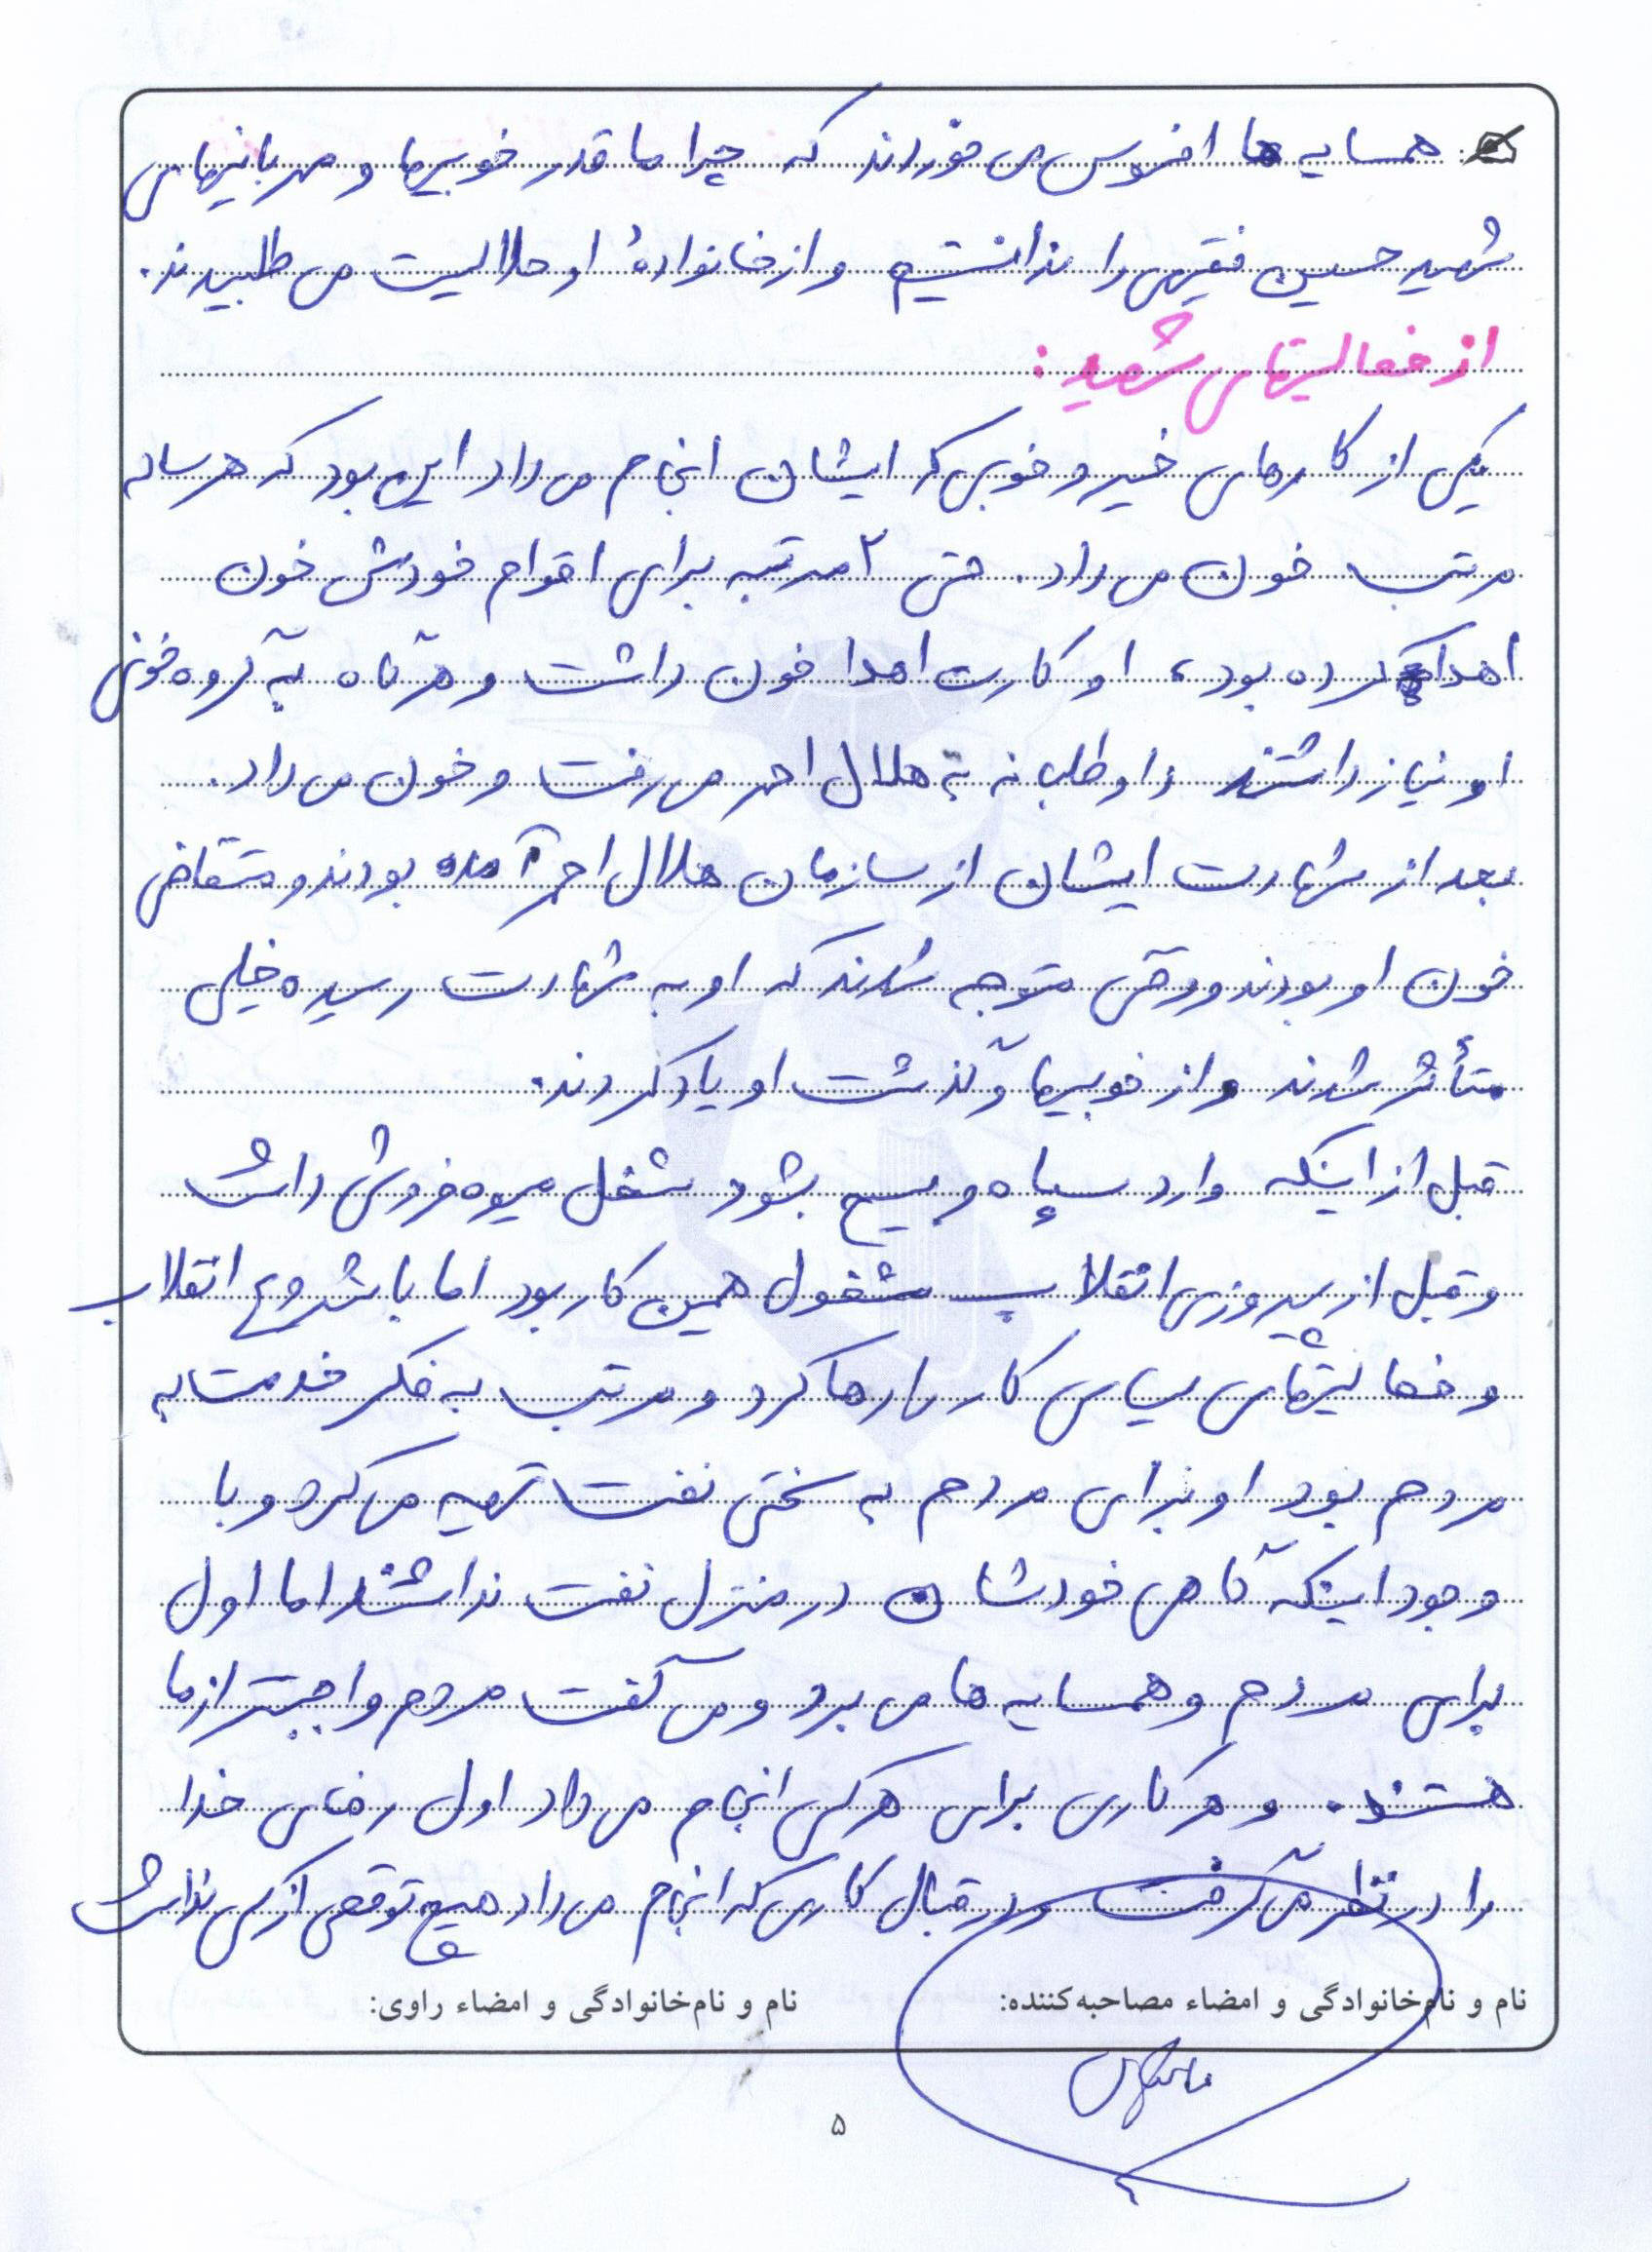 همسایه ها افسوس می خوردند که چرا ما قدر خوبیها و مهربانیهای
شهید حسین فقیهی را ندانستیم و از خانوادهٔ او حلالیت می طلبیدند.
از فعالیتهای شهید:
یکی از کارهای خیر و خوبی که ایشان انجام می داد این بود که هر ساله
مرتب خون می داد. حتی ۲ مرتبه برای اقوام خودش خون
اهدا کرده بود، او کارت اهدا خون داشت و هرگاه به گروه خونی
او نیاز داشتند داوطلبانه به هلال احمر می رفت و خون می داد.
بعد از شهادت ایشان از سازمان هلال احمر آمده بودند و متقاضی
خون او بودند و وقتی متوجه شدند که او به شهادت رسیده خیلی
متأثر شدند و از خوبیها و گذشت او یاد کردند.
قبل از اینکه وارد سپاه و بسیج بشود شغل میوه فروشی داشت
و قبل از پیروزی انقلاب مشغول همین کار بود اما با شروع انقلاب
و فعالیتهای سیاسی کار را رها کرد و مرتب به فکر خدمت به
مردم بود او برای مردم به سختی نفت تهیه می کرد و با
وجود اینکه گاهی خودشان در منزل نفت نداشتند اما اول
برای مردم و همسایه ها می برد و می گفت مردم واجبتر از ما
هستند. و هر کاری برای هر کسی انجام می داد اول رضای خدا
را در نظر می گرفت و در قبال کاری که انجام می داد هیچ توقعی از کسی نداشت
نام و نام‌خانوادگی و امضاء مصاحبه‌کننده:
نام و نام‌خانوادگی و امضاء راوی:
۵